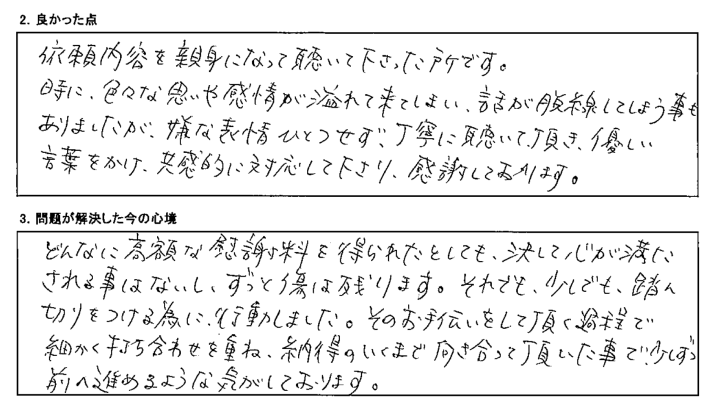 2. 良かった点
依頼内容を親身になって聴いて下さった所です。
時に、色々な思いや感情が溢れて来てしまい、話が脱線してしまう事も
ありましたが、嫌な表情ひとつせず、丁寧に聴いて頂き、優しい
言葉をかけ、共感的に対応して下さり、感謝しております。
3. 問題が解決した今の心境
どんなに高額な慰謝料を得られたとしても、決して心が満た
される事はないし、ずっと傷は残ります。それでも、少しでも、踏ん
切りをつける為に、行動しました。そのお手伝いをして頂く過程で
細かく打ち合わせを重ね、納得のいくまで向き合って頂いた事で、少しずつ
前へ進めるような気がしております。